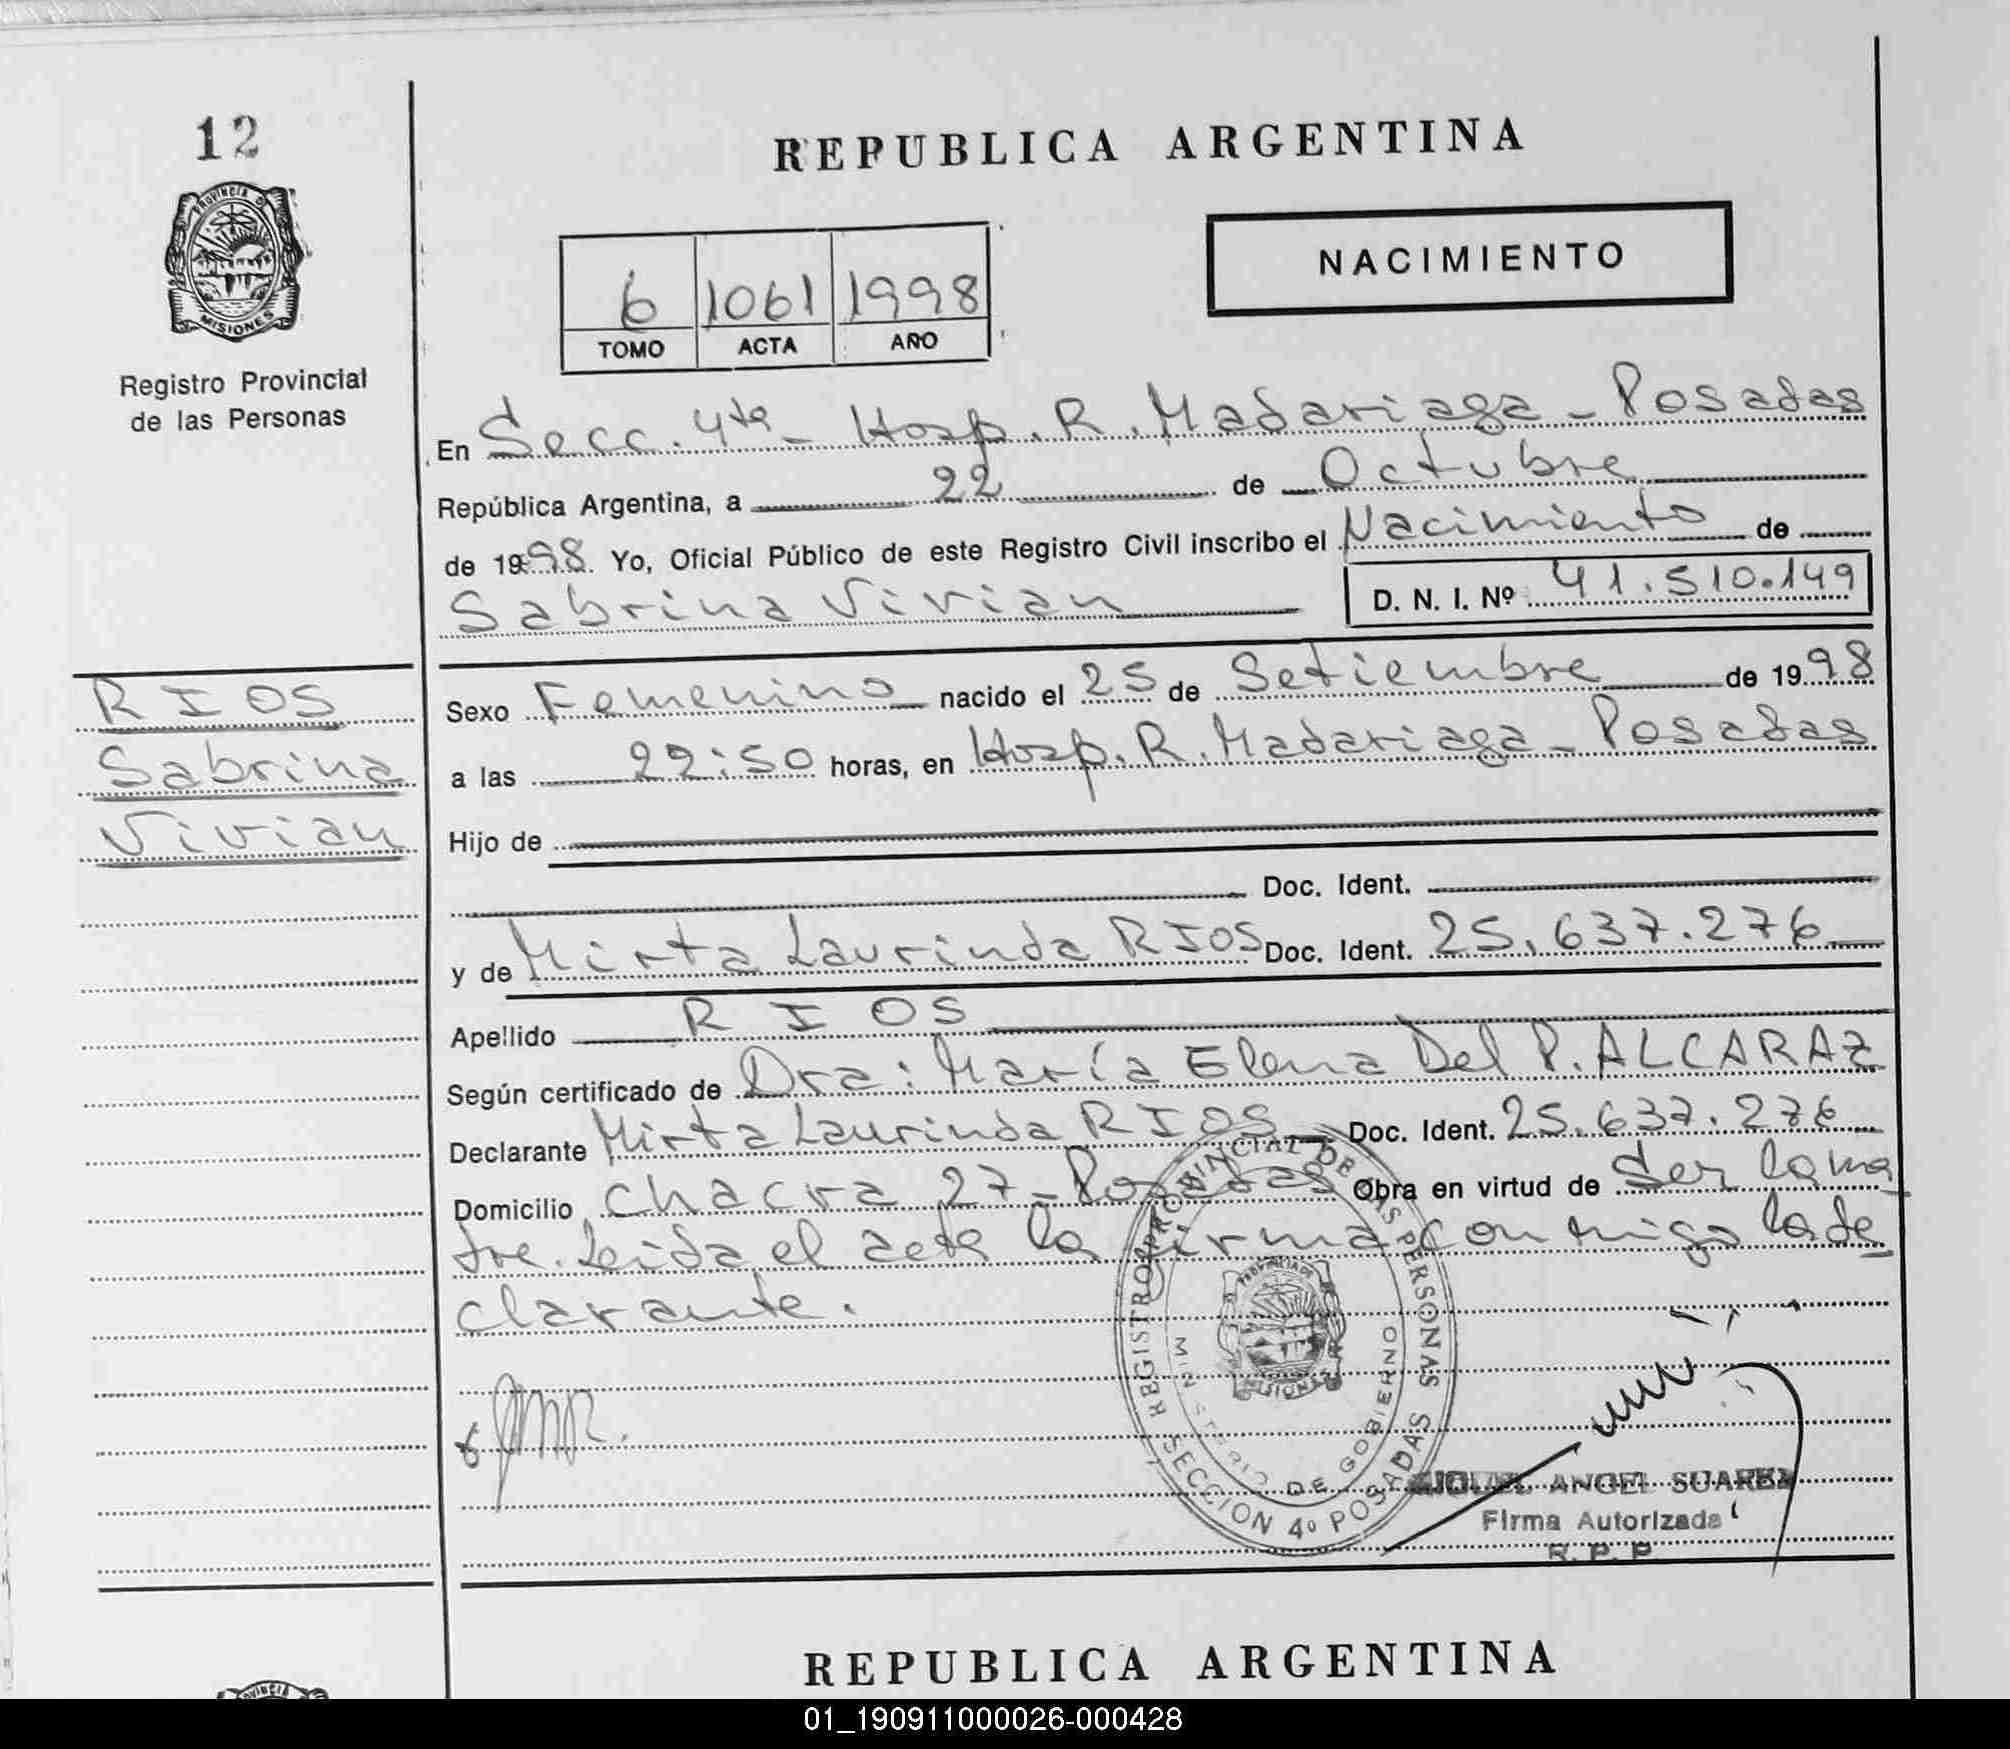 12
PROVINCIA D
MISIONES
Registro Provincial
de las Personas
REPUBLICA ARGENTINA
NACIMIENTO
6 1061 1998
TOMO ACTA AÑO
En Secc. 4ta - Hosp. R. Madariaga - Posadas
República Argentina, a 22 de Octubre
de 1998. Yo, Oficial Público de este Registro Civil inscribo el Nacimiento de
Sabrina Vivian D. N. I. Nº 41.510.149
RIOS
Sabrina
Vivian
Sexo Femenino nacido el 25 de Setiembre de 1998
a las 22:50 horas, en Hosp. R. Madariaga - Posadas
Hijo de
Doc. Ident.
y de Mirta Laurinda RIOS Doc. Ident. 25.637.276
Apellido RIOS
Según certificado de Dra: María Elena Del P. ALCARAZ
Declarante Mirta Laurinda RIOS Doc. Ident. 25.637.276
Domicilio chacra 27 - Posadas Obra en virtud de Ser la ma
dre. Leida el acta la firma conmigo la de
clarante.
REGISTRO PROVINCIAL DE LAS PERSONAS
MINISTERIO DE GOBIERNO
SECCION 4º POSADAS
MISIONES
ANGEL SUAREZ
Firma Autorizada
R. P. P.
REPUBLICA ARGENTINA
01_190911000026-000428